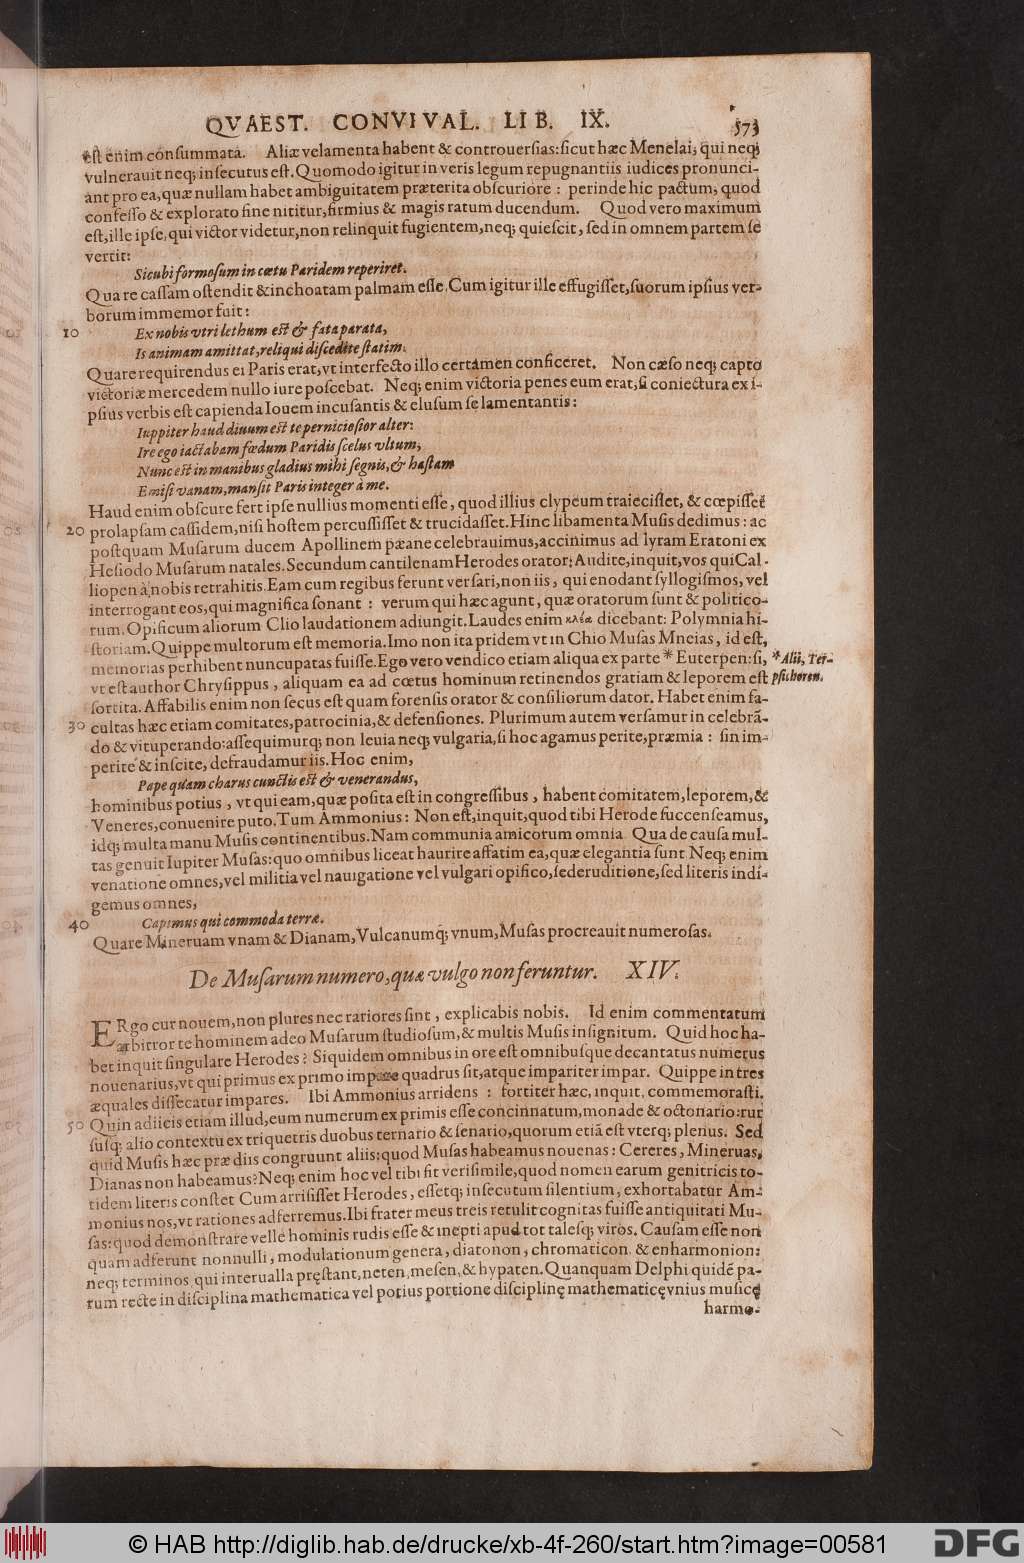 QVAEST. CONVIVAL. LIB. IX. 573
est enim consummata. Aliæ velamenta habent & controuersias: sicut hæc Menelai, qui neq;
vulnerauit neq; insecutus est. Quomodo igitur in veris legum repugnantiis iudices pronunci-
ant pro ea, quæ nullam habet ambiguitatem præterita obscuriore: perinde hic pactum, quod
confesso & explorato fine nititur, firmius & magis ratum ducendum. Quod vero maximum
est, ille ipse, qui victor videtur, non relinquit fugientem, neq; quiescit, sed in omnem partem se
vertit:
Sicubi formosum in cœtu Paridem reperiret.
Quare cassam ostendit & inchoatam palmam esse. Cum igitur ille effugisset, suorum ipsius ver-
borum immemor fuit:
10 Ex nobis vtri lethum est & fata parata,
Is animam amittat, reliqui discedite statim.
Quare requirendus ei Paris erat, vt interfecto illo certamen conficeret. Non cæso neq; capto
victoriæ mercedem nullo iure poscebat. Neq; enim victoria penes eum erat, si coniectura ex i-
psius verbis est capienda Iouem incusantis & elusum se lamentantis:
Iuppiter haud diuum est te perniciosior alter:
Ire ego iactabam fœdum Paridis scelus vltum,
Nunc est in manibus gladius mihi segnis, & hastam
Emisi vanam, mansit Paris integer à me.
Haud enim obscure fert ipse nullius momenti esse, quod illius clypeum traiecisset, & cœpisset
20 prolapsam cassidem, nisi hostem percussisset & trucidasset. Hinc libamenta Musis dedimus: ac
postquam Musarum ducem Apollinem pæane celebrauimus, accinimus ad lyram Eratoni ex
Hesiodo Musarum natales. Secundum cantilenam Herodes orator: Audite, inquit, vos qui Cal-
liopen à nobis retrahitis. Eam cum regibus ferunt versari, non iis, qui enodant syllogismos, vel
interrogant eos, qui magnifica sonant: verum qui hæc agunt, quæ oratorum sunt & politico-
rum. Opificum aliorum Clio laudationem adiungit. Laudes enim κλέα dicebant: Polymnia hi-
storiam. Quippe multorum est memoria. Imo non ita pridem vt in Chio Musas Mneias, id est,
memorias perhibent nuncupatas fuisse. Ego vero vendico etiam aliqua ex parte * Euterpen: si, * Alii, Ter-
vt est author Chrysippus, aliquam ea ad cœtus hominum retinendos gratiam & leporem est psichoren.
sortita. Affabilis enim non secus est quam forensis orator & consiliorum dator. Habet enim fa-
30 cultas hæc etiam comitates, patrocinia, & defensiones. Plurimum autem versamur in celebrã-
do & vituperando: assequimurq; non leuia neq; vulgaria, si hoc agamus perite, præmia: sin im-
perite & inscite, defraudamur iis. Hoc enim,
Pape quàm charus cunctis est & venerandus,
hominibus potius, vt qui eam, quæ posita est in congressibus, habent comitatem, leporem, &
Veneres, conuenire puto. Tum Ammonius: Non est, inquit, quod tibi Herode succenseamus,
idq; multa manu Musis continentibus. Nam communia amicorum omnia. Qua de causa mul-
tas genuit Iupiter Musas: quo omnibus liceat haurire affatim ea, quæ elegantia sunt. Neq; enim
venatione omnes, vel militia vel nauigatione vel vulgari opifico, sed eruditione, sed literis indi-
gemus omnes,
40 Capimus qui commoda terræ.
Quare Mineruam vnam & Dianam, Vulcanumq; vnum, Musas procreauit numerosas.
De Musarum numero, quæ vulgo non feruntur. XIV.
ERgo cur nouem, non plures nec rariores sint, explicabis nobis. Id enim commentatum
arbitror te hominem adeo Musarum studiosum, & multis Musis insignitum. Quid hoc ha-
bet inquit singulare Herodes? Siquidem omnibus in ore est omnibusque decantatus numerus
nouenarius, vt qui primus ex primo impare quadrus sit, atque impariter impar. Quippe in tres
æquales dissecatur impares. Ibi Ammonius arridens: fortiter hæc, inquit, commemorasti.
50 Quin adiicis etiam illud, eum numerum ex primis esse concinnatum, monade & octonario: rur
susq; alio contextu ex triquetris duobus ternario & senario, quorum etiã est vterq; plenus. Sed
quid Musis hæc præ diis congruunt aliis: quod Musas habeamus nouenas: Cereres, Mineruas,
Dianas non habeamus? Neq; enim hoc vel tibi fit verisimile, quod nomen earum genitricis to-
tidem literis constet. Cum arrisisset Herodes, essetq; insecutum silentium, exhortabatur Am-
monius nos, vt rationes adferremus. Ibi frater meus treis retulit cognitas fuisse antiquitati Mu-
sas: quod demonstrare velle hominis rudis esse & inepti apud tot talesq; viros. Causam esse non
quam adferunt nonnulli, modulationum genera, diatonon, chromaticon & enharmonion:
neq; terminos qui interualla pręstant, neten, mesen, & hypaten. Quanquam Delphi quidẽ pa-
rum recte in disciplina mathematica vel potius portione disciplinę mathematicę vnius musicę
harmo-
© HAB http://diglib.hab.de/drucke/xb-4f-260/start.htm?image=00581 DFG